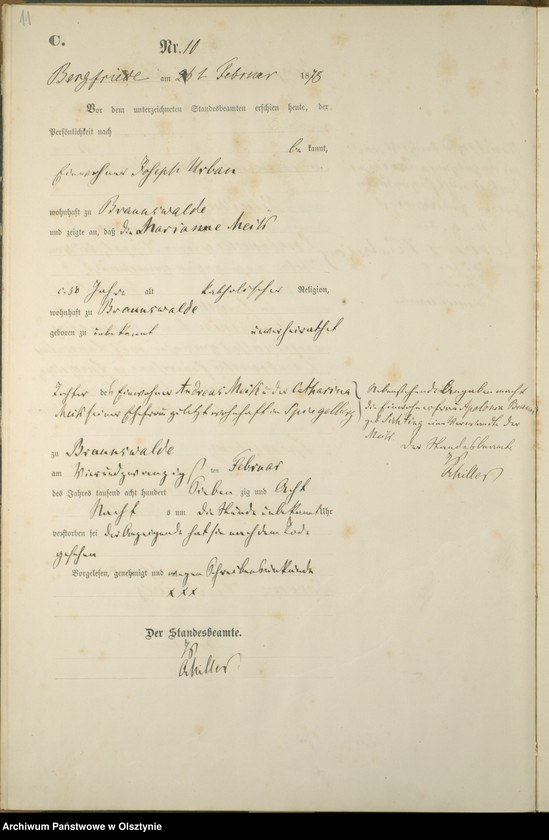 11
C.
Nr. 10
Bergfriede am Februar 1878
Vor dem unterzeichneten Standesbeamten erschien heute, der
Persönlichkeit nach
be kannt,
Einwohner Joseph Urban
wohnhaft zu Braunswalde
und zeigte an, daß die Marianne Meik
Jahre alt katholischer Religion,
wohnhaft zu Braunswalde
geboren zu unbekannt unverheirathet
Tochter des Einwohner Andreas Meik u der Catharina
Meik seiner Ehefrau zuletzt wohnhaft in Spiegelberg
zu Braunswalde
am Vierundzwanzig ten Februar
des Jahres tausend acht hundert Sieben zig und Acht
Nacht s um die Stunde unbekannt Uhr
verstorben sei der Anzeigende hat sie nach dem Tode
gesehen
Vorgelesen, genehmigt und wegen Schreibensunkunde
x x x
Der Standesbeamte.
Schiller
Nebenstehende Angaben macht
die Einwohnerfrau
eine Verwandte der
Meik.
Der Standesbeamte
Schiller
Archiwum Państwowe w Olsztynie